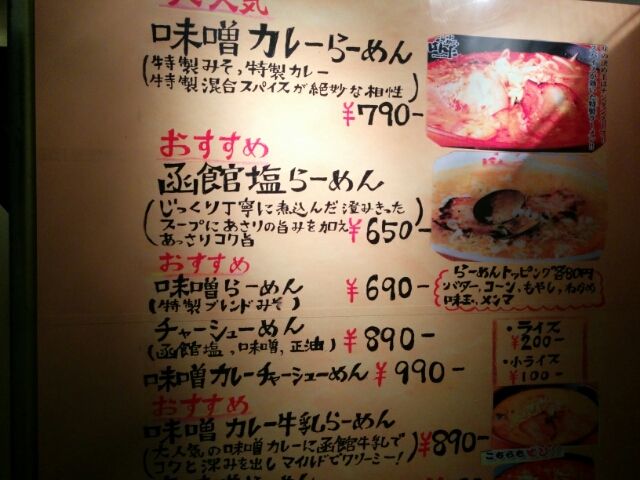 大人気
味噌カレーらーめん
(特製みそ、特製カレー
特製混合スパイスが絶妙な相性)
¥790-
おすすめ
函館塩らーめん
(じっくり丁寧に煮込んだ澄みきった
スープにあさりの旨みを加え
あっさりコク旨)
¥650-
おすすめ
味噌らーめん ¥690-
(特製ブレンドみそ)
チャーシューめん ¥890-
(函館塩、味噌、正油)
味噌カレーチャーシューめん ¥990-
おすすめ
味噌カレー牛乳らーめん
(大人気の味噌カレーに函館牛乳で
コクと深みを出しマイルドでクリーミー!)
¥890-
らーめんトッピング各80円
バター、コーン、もやし、わかめ
味玉、メンマ
・ライス
¥200-
・小ライス
¥100-